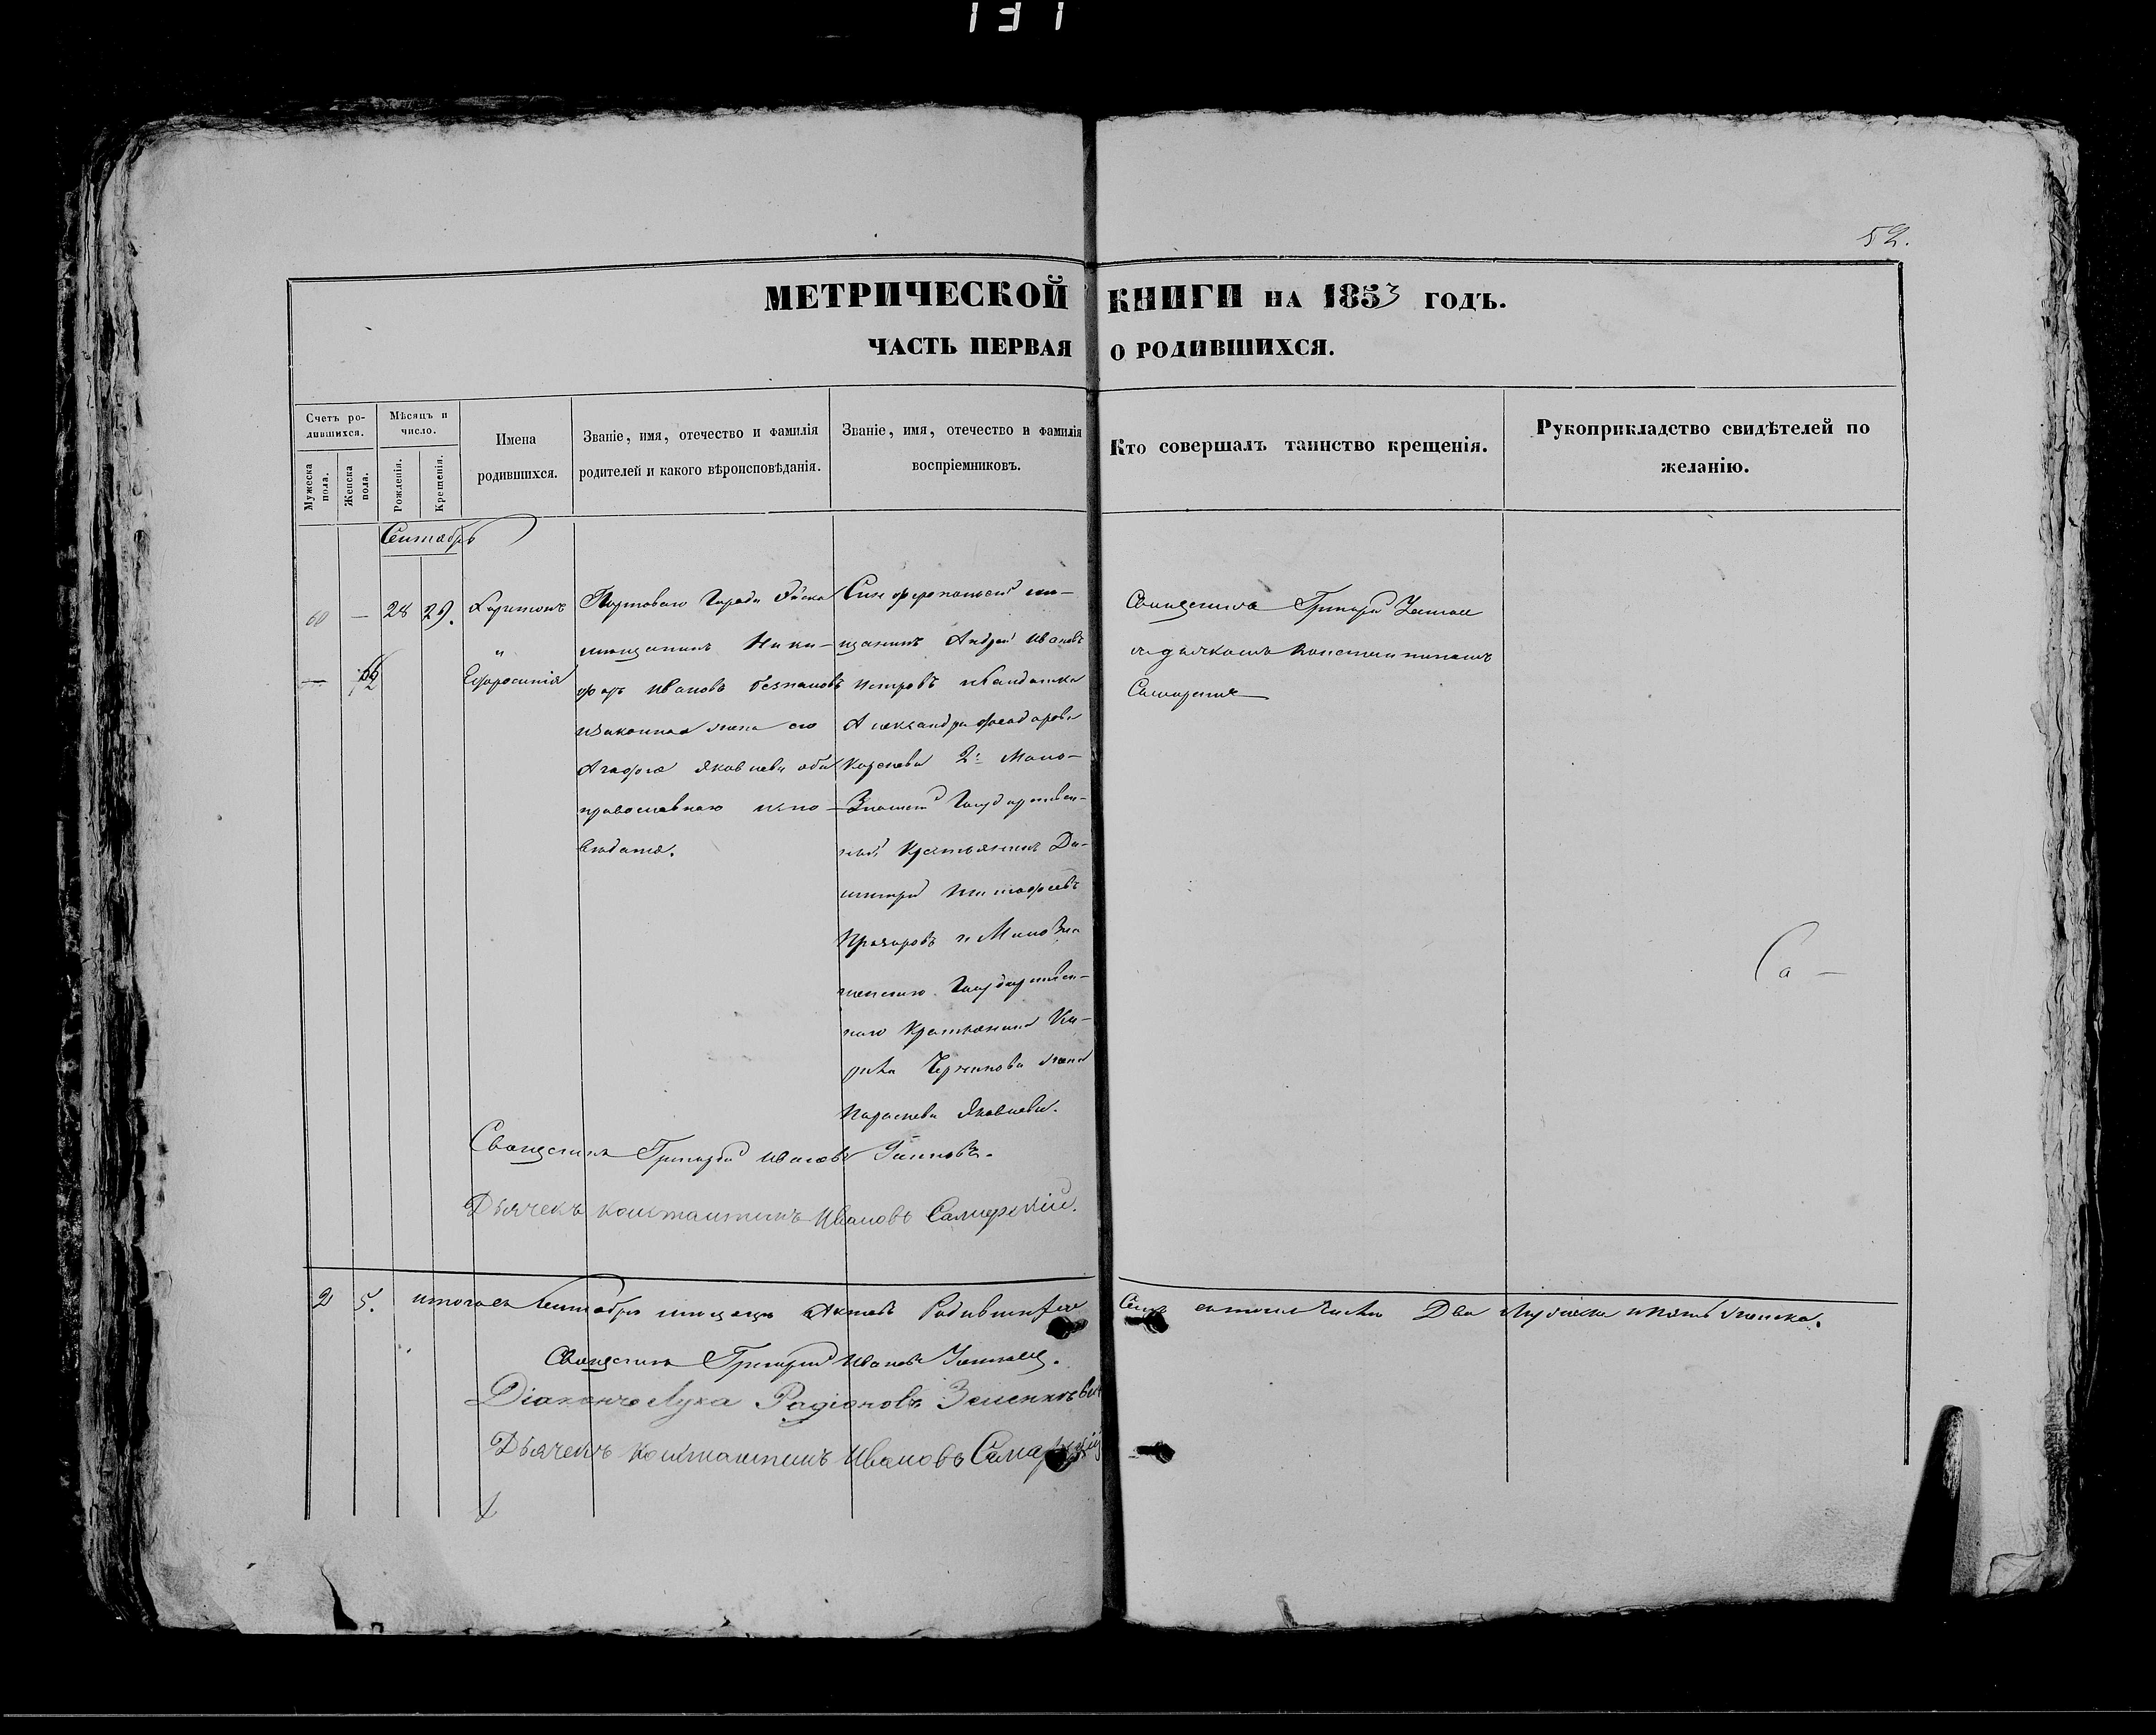 131
52.
МЕТРИЧЕСКОЙ КНИГИ НА 1853 ГОДЪ.
ЧАСТЬ ПЕРВАЯ О РОДИВШИХСЯ.
Счетъ ро-
дившихся.
Мужеска пола.
Женска пола.
Мѣсяцъ и
число.
Рожденія.
Крещенія.
Имена
родившихся.
Званіе, имя, отечество и фамилія
родителей и какого вѣроисповѣданія.
Званіе, имя, отечество и фамилія
воспріемниковъ.
Кто совершалъ таинство крещенія.
Рукоприкладство свидѣтелей по
желанію.
Сентабрь
— 28 29.
Харитонъ
и
Ефросинія
Портоваго Города Ейска
мещанинъ Ники-
форъ Ивановъ
изаконная жена его
Агафія Яковлева оба
православнаго испо-
веданія.
Симферопольский ме-
щанинъ Андрей Ивановъ
Петровъ
Александра Феодорова
2й
Государствен-
ный Крестьянинъ Ди-
митрий
Государствен-
наго Крестьянина Ки-
рила жена
Параскева Яковлева.
Священникъ Григорий
здьячкомъ Константиномъ
Самарскимъ
Са —
Священникъ Григорий Ивановъ
Дьячекъ Константинъ Ивановъ Самарский.
2 5. итого въ Сентабре месяце Актовъ Родившихся
Семь втомъ числе Два мужеска ипять женска.
Священникъ Григорий Ивановъ
Діаконъ Лука Радіоновъ
Дьячекъ Константинъ Ивановъ Самарский